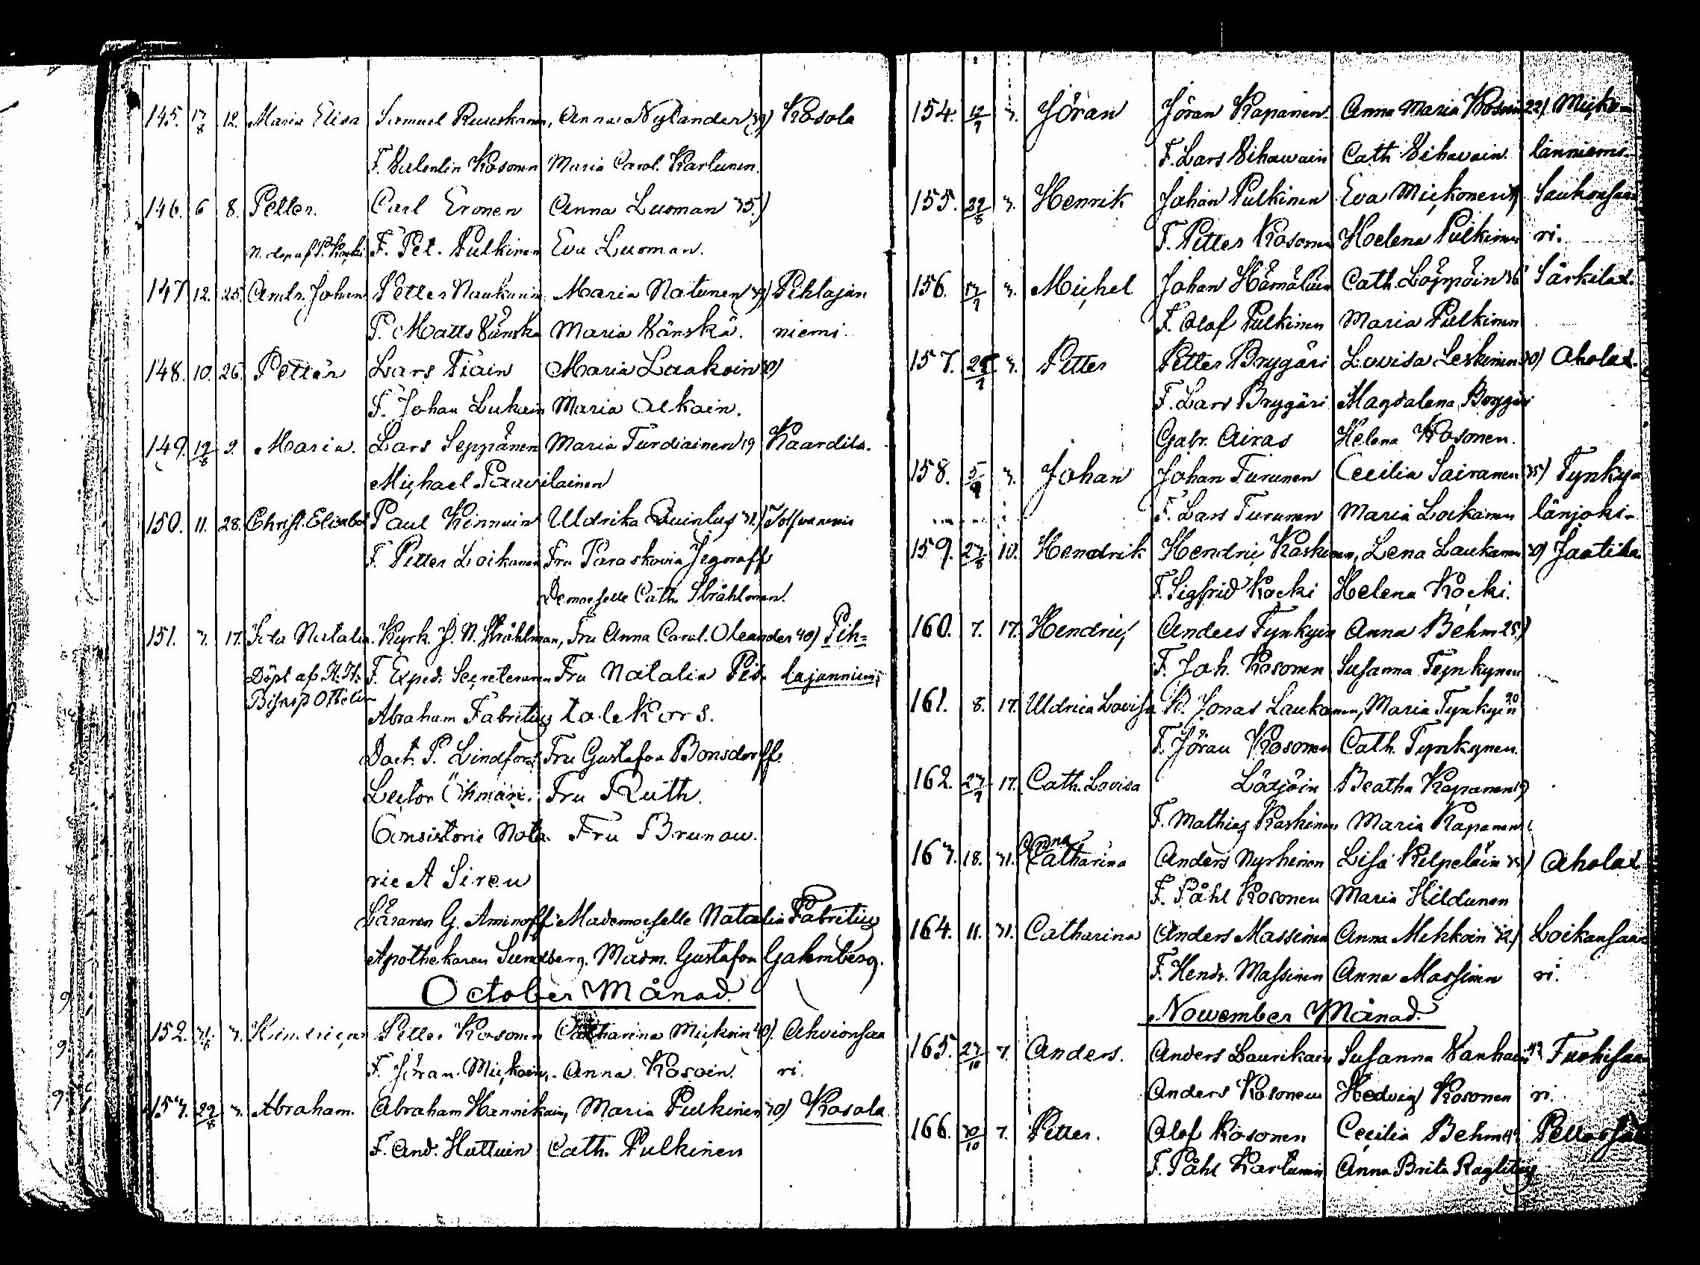 145. 17/8 12. Maria Elisa Samuel Ruuskanen, Anna Nylander 39) Kosola
F. Valentin Kosonen Maria Carol. Karlunen.
146. 6 8. Petter. Carl Eronen Anna Luoman 35)
F. Pet. Pulkinen Eva Luoman.
147 12. 25 Andr. Johan Petter Naukarin Maria Natunen Pihlajan
F. Matts Vänska Maria Vänskä. niemi.
148. 10. 26. Petter Lars Tiain Maria Laakoin
F. Johan Lukain Maria Alkain.
149. 19/8 2. Maria. Lars Seppänen Maria Turdiainen 19 Kaardila.
Michael Paavilainen
150. 11. 28. Christ. Elisabet Paul Kinnuin Uldrika Quinlug 31)
F. Petter Loikanen Fru Paraskovia Jegoroff
Demoiselle Cath. Stråhlman.
151. 3. 17. Ida Natalia. Kyrk. J. N. Stråhlman, Fru Anna Carol. Oleander 40) Pih-
Döpt af H. H. F. Exped. Secreteraren Fru Natalia Pis- lajanniemi
Biskop Ottelin
Abraham Fabritius talekors.
Doct. P. Lindfors Fru Gustafva Bonsdorff
Lector Öhman: Fru Ruth.
Consistorie Nota- Fru Brunow.
rie A Siren
Läraren G. Aminoff Mademoiselle Natalia Fabritius
Apothekaren Sundberg. Madm. Gustafva Gahmberg.
October Månad.
152. 3. Hindrica Petter Kosonen Catharina Mickoin 40). Ahvionsaa
F. Jöran Mickoin, Anna Kosoin. ri.
153. 29/8 3. Abraham. Abraham Hannikain, Maria Pulkinen 30) Kosola
F. And. Huttuin Cath. Pulkinen
154. 12/9 3. Jöran Jöran Kapanen. Anna Maria Kosoin 22) Micko-
F. Lars Vihavain Cath Vihavain. länniemi.
155. 29/8 3. Henrik Johan Pulkinen Eva Mickonen Saukonsaa
F. Petter Kosonen Helena Pulkinen ri.
156. 17/9 3. Michel Johan Hämäläin Cath. Läppöin 36 Särkilax.
F. Olof Pulkinen Maria Pulkinen
157. 3. Petter Petter Brygäri Lovisa Leskinen 30) Ahola.
F. Lars Brygäri Magdalena Brygäri
Gabr. Airas Helena Kosonen.
158. 5/9 3. Johan Johan Turunen Cecilia Sairanen 35) Tynky-
F. Lars Turunen Maria Loikanen länjoki-
159. 27/8 10. Hendrik Hendric Koskinen, Lena Laukanen 30) Jaatila
F. Sigfrid Kocki Helena Kocki.
160. 7. 17. Hendric Anders Tynkyin Anna Behm 25)
F. Joh. Kosonen Susanna Tynkynen
161. 8. 17. Uldrica Lovisa R. Jonas Laukanen, Maria Tynkyin 20
F. Jöran Kosonen Cath. Tynkynen.
162. 27/9 17. Cath. Lovisa Lötjöin Beatha Kapanen 19)
F. Mathias Kaskinen Maria Kapanen
163. 18. 31. Anna Catharina Anders Nyrhinen Lisa Kilpeläin Ahola
F. Påhl Kosonen Maria Hildunen
164. 11. 31. Catharina Anders Massinen Anna Mikkoin 32) Loikansaa
F. Hendr. Massinen Anna Massinen ri.
November Månad.
165. 27/10 7. Anders. Anders Laurikain Susanna Vanhain Tuohisaa
Anders Kosonen Hedvig Kosonen ri.
166. 30/10 7. Petter. Olof Kosonen Cecilia Behm
F. Påhl Kartunin Anna Brita Ragliteg